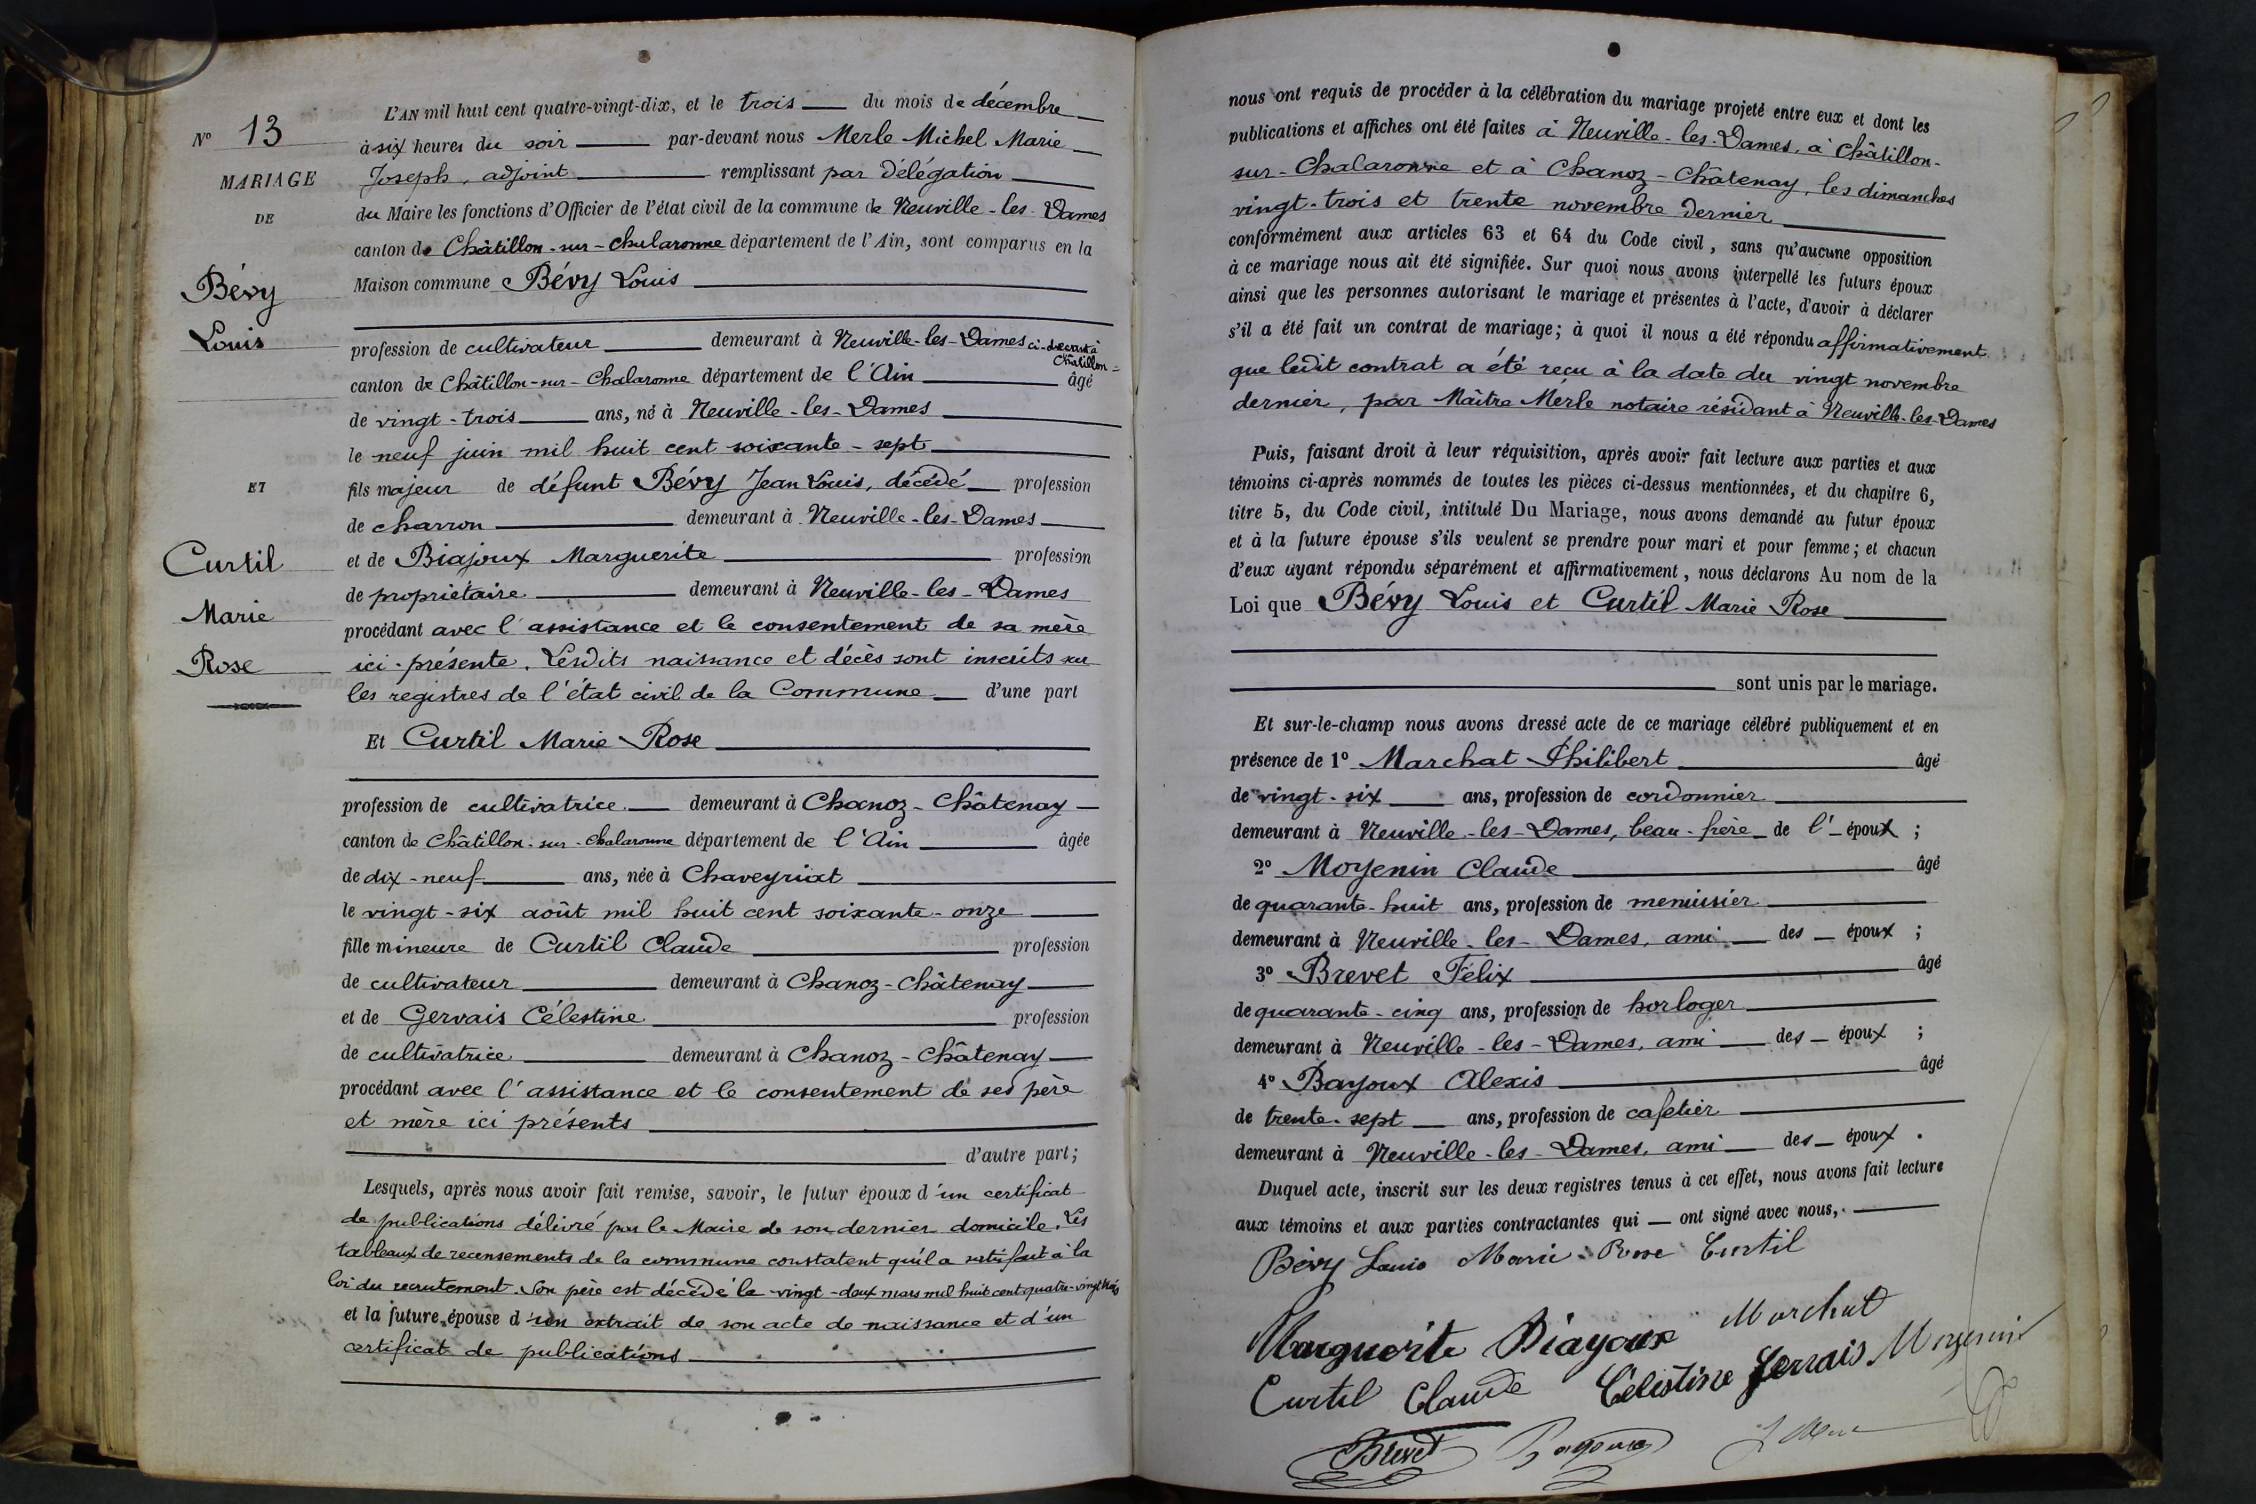 N° 13
MARIAGE
DE
Bévy
Louis
ET
Curtil
Marie
Rose
L'AN mil huit cent quatre-vingt-dix, et le trois du mois de décembre
à six heures du soir par-devant nous Merle Michel Marie
Joseph, adjoint remplissant par délégation
du Maire les fonctions d'Officier de l'état civil de la commune de Neuville-les-Dames
canton de Châtillon-sur-Chalaronne département de l'Ain, sont comparus en la
Maison commune Bévy Louis
profession de cultivateur demeurant à Neuville-les-Dames ci-devant à
Châtillon=
canton de Châtillon-sur-Chalaronne département de l'Ain âgé
de vingt-trois ans, né à Neuville-les-Dames
le neuf juin mil huit cent soixante-sept
fils majeur de défunt Bévy Jean Louis, décédé profession
de charron demeurant à Neuville-les-Dames
et de Biajoux Marguerite profession
de propriétaire demeurant à Neuville-les-Dames
procédant avec l'assistance et le consentement de sa mère
ici-présente. Lesdits naissance et décès sont inscrits sur
les registres de l'état civil de la Commune d'une part
Et Curtil Marie Rose
profession de cultivatrice demeurant à Chanoz-Châtenay
canton de Châtillon-sur-Chalaronne département de l'Ain âgée
de dix-neuf ans, née à Chaveyriat
le vingt-six août mil huit cent soixante-onze
fille mineure de Curtil Claude profession
de cultivateur demeurant à Chanoz-Châtenay
et de Gervais Célestine profession
de cultivatrice demeurant à Chanoz-Châtenay
procédant avec l'assistance et le consentement de ses père
et mère ici présents
d'autre part;
Lesquels, après nous avoir fait remise, savoir, le futur époux d'un certificat
de publications délivré par le Maire de son dernier domicile. Les
tableaux de recensements de la commune constatent qu'il a satisfait à la
loi du recrutement. Son père est décédé le vingt-deux mars mil huit cent quatre-vingt trois
et la future épouse d'un extrait de son acte de naissance et d'un
certificat de publications
nous ont requis de procéder à la célébration du mariage projeté entre eux et dont les
publications et affiches ont été faites à Neuville-les-Dames, à Châtillon-
sur-Chalaronne et à Chanoz-Châtenay, les dimanches
vingt-trois et trente novembre dernier
conformément aux articles 63 et 64 du Code civil, sans qu'aucune opposition
à ce mariage nous ait été signifiée. Sur quoi nous avons interpellé les futurs époux
ainsi que les personnes autorisant le mariage et présentes à l'acte, d'avoir à déclarer
s'il a été fait un contrat de mariage; à quoi il nous a été répondu affirmativement
que ledit contrat a été reçu à la date du vingt novembre
dernier, par Maître Merle notaire résidant à Neuville-les-Dames
Puis, faisant droit à leur réquisition, après avoir fait lecture aux parties et aux
témoins ci-après nommés de toutes les pièces ci-dessus mentionnées, et du chapitre 6,
titre 5, du Code civil, intitulé Du Mariage, nous avons demandé au futur époux
et à la future épouse s'ils veulent se prendre pour mari et pour femme; et chacun
d'eux ayant répondu séparément et affirmativement, nous déclarons Au nom de la
Loi que Bévy Louis et Curtil Marie Rose
sont unis par le mariage.
Et sur-le-champ nous avons dressé acte de ce mariage célébré publiquement et en
présence de 1° Marchat Philibert âgé
de vingt-six ans, profession de cordonnier
demeurant à Neuville-les-Dames, beau-frère de l'époux;
2° Moyenin Claude âgé
de quarante-huit ans, profession de menuisier
demeurant à Neuville-les-Dames, ami des époux;
3° Brevet Félix âgé
de quarante-cinq ans, profession de horloger
demeurant à Neuville-les-Dames, ami des époux;
4° Bayoux Alexis âgé
de trente-sept ans, profession de cafetier
demeurant à Neuville-les-Dames, ami des époux.
Duquel acte, inscrit sur les deux registres tenus à cet effet, nous avons fait lecture
aux témoins et aux parties contractantes qui ont signé avec nous,
Bévy Louis Marie Rose Curtil
Marguerite Biayoux Marchat
Curtil Claude Célestine Gervais Moyenin
Brevet Bayoux